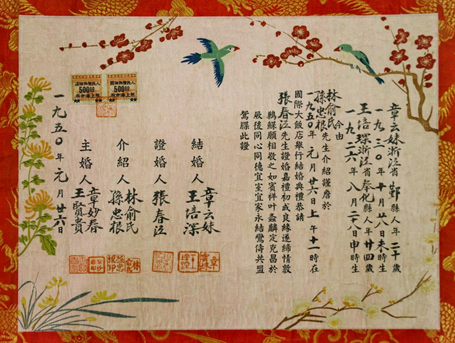 章云妹浙江省鄞縣人年二十歲
一九三十年十月廿八日未時生
王浩琛浙江省奉化縣人年廿四歲
一九二六年八月二八日申時生
今由
林俞氏
孫忠根先生介紹謹詹於
一九五〇年元月廿六日上午十一時在
國際大飯店舉行結婚典禮恭請
張春江先生證婚嘉禮初成良緣遂締情敦
鶼鰈願相敬之如賓祥叶螽麟定克昌於
厥後同心同德宜室宜家永結鸞儔共盟
鴛牒此證
結婚人
章云妹
王浩琛
證婚人
張春江
介紹人
林俞氏
孫忠根
主婚人
章妙春
王賢貴
一九五〇年元月廿六日
500
500